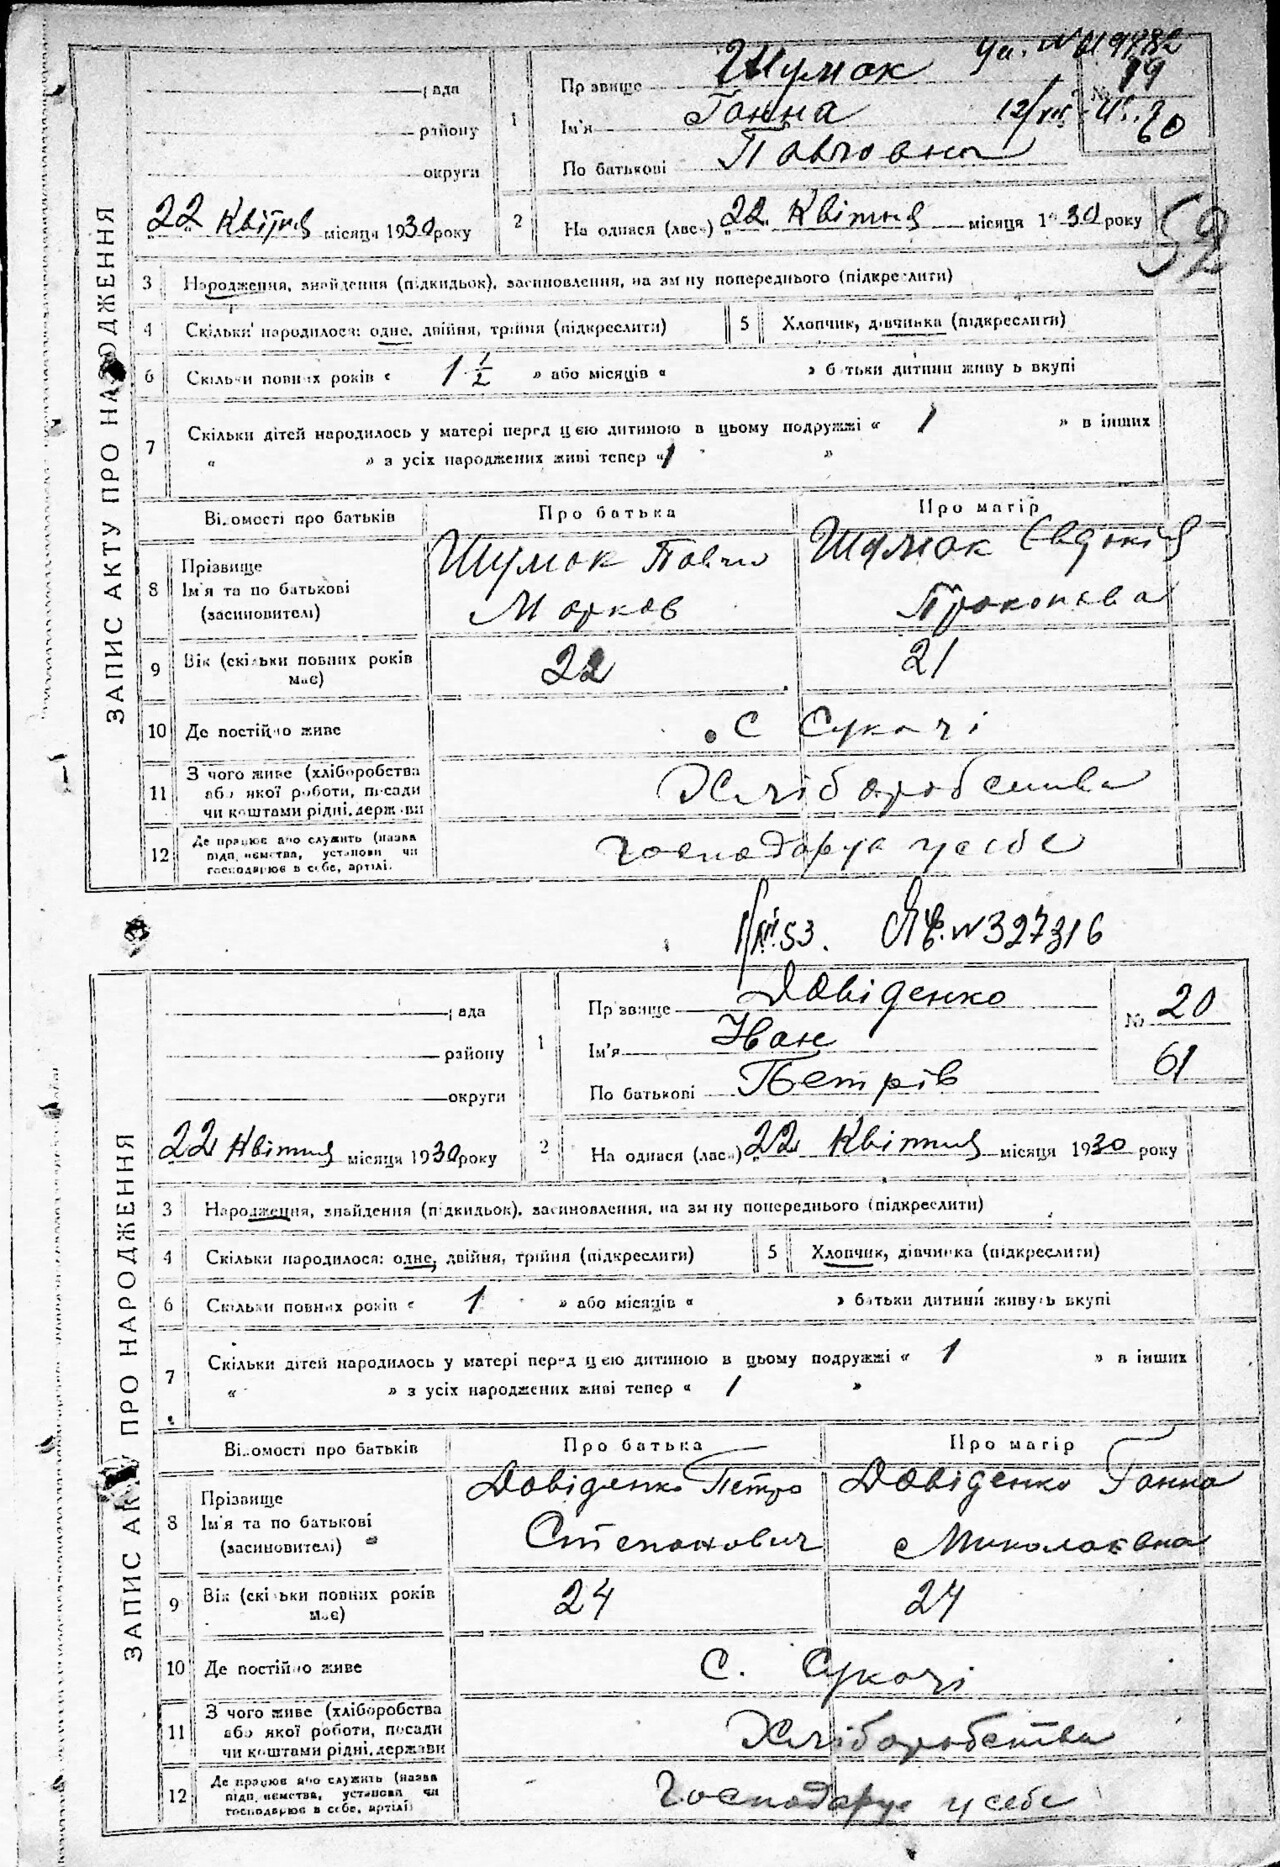 ЗАПИС АКТУ ПРО НАРОДЖЕННЯ
рада
району
округи
22 Квітня місяця 1930 року
1
Прізвище Шумак
Ім'я Ганна
По батькові Павловна
№ 19
60
52
2 На одився (лась) 22 Квітня місяця 1930 року
3 Народження, знайдення (підкидьок), засиновлення, на зміну попереднього (підкреслити)
4 Скільки народилося: одне, двійня, трійня (підкреслити) 5 Хлопчик, дівчинка (підкреслити)
6 Скільки повних років « 1 1/2 » або місяців « » батьки дитини живуть вкупі
7 Скільки дітей народилось у матері перед цією дитиною в цьому подружжі « 1 » в інших
« » з усіх народжених живі тепер « 1 »
Відомості про батьків Про батька Про матір
8 Прізвище Ім'я та по батькові (засиновителі) Шумак Павло Марков Шумак Євдокія Прокопова
9 Вік (скільки повних років має) 22 21
10 Де постійно живе С Сукачі
11 З чого живе (хліборобства або якої роботи, посади чи коштами рідні, держави Хліборобства
12 Де працює або служить (назва підприємства, установи чи господарює в себе, артілі. Господарує у себе
53. ЯЄ. № 327316
ЗАПИС АКТУ ПРО НАРОДЖЕННЯ
рада
району
округи
22 Квітня місяця 1930 року
1
Прізвище Давіденко
Ім'я Іван
По батькові Петрів
№ 20
61
2 На одився (лась) 22 Квітня місяця 1930 року
3 Народження, знайдення (підкидьок), засиновлення, на зміну попереднього (підкреслити)
4 Скільки народилося: одне, двійня, трійня (підкреслити) 5 Хлопчик, дівчинка (підкреслити)
6 Скільки повних років « 1 » або місяців « » батьки дитини живуть вкупі
7 Скільки дітей народилось у матері перед цією дитиною в цьому подружжі « 1 » в інших
« » з усіх народжених живі тепер « 1 »
Відомості про батьків Про батька Про матір
8 Прізвище Ім'я та по батькові (засиновителі) Давіденко Петро Степанович Давіденко Ганна Миколаєвна
9 Вік (скільки повних років має) 24 24
10 Де постійно живе С. Сукачі
11 З чого живе (хліборобства або якої роботи, посади чи коштами рідні, держави Хліборобства
12 Де працює або служить (назва підприємства, установи чи господарює в себе, артілі) Господарує у себе